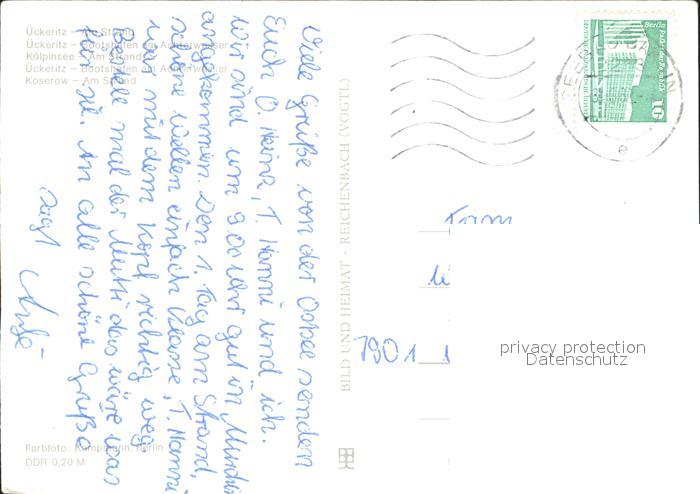 Ückeritz - Am Strand
Ückeritz - Bootshafen am Achterwasser
Kölpinsee - Am Strand
Ückeritz - Bootshafen am Achterwasser
Koserow - Am Strand
Viele Grüße von der Ostsee senden
Euch O. Heinz, T. Hanni und ich.
Wir sind um 9.00 Uhr gut in
angekommen. Den 1. Tag am Strand,
schöne Wellen einfach Klasse, T. Hanni
war mit dem Kopf richtig weg
mal der Mutti das wäre was
für sie. An alle schöne Grüße
sagt
BILD UND HEIMAT · REICHENBACH (VOGTL)
Farbfoto: Kampmann, Berlin
DDR 0,20 M
Berlin Palast der Republik
10
BERLIN
e
7901
privacy protection
Datenschutz